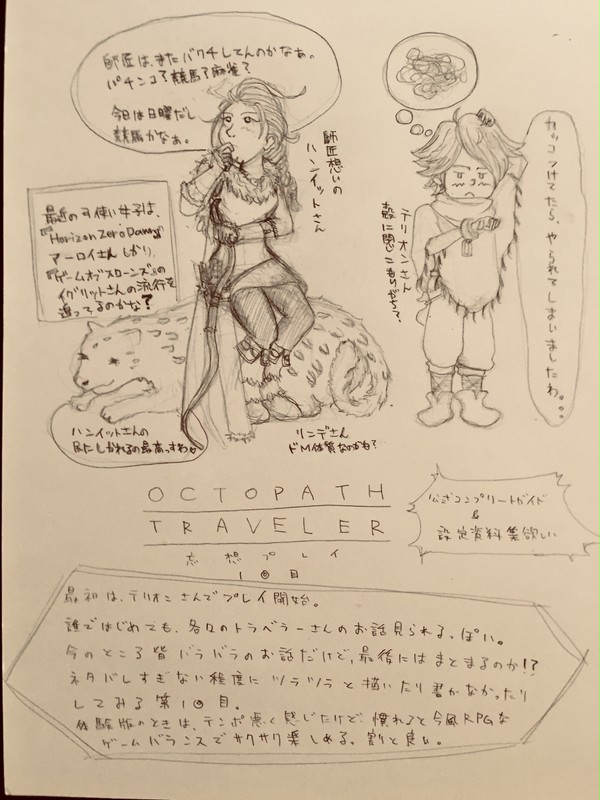 師匠は、またバクチしてんのかなぁ。
パチンコ?競馬?麻雀?
今日は日曜だし
競馬かなぁ。
師匠想いの
ハンイットさん
最近の弓使い女子は、
『Horizon Zero Dawn』
アーロイさんしかり、
『ゲームオブスローンズ』の
イグリットさんの流行を
追ってるのかな?
カッコつけてたら、やられてしまいましたわ。。。
テリオンさん
殻に閉じこもりがち?
ハンイットさんの
尻にしかれるの最高っすわ
リンデさん
ドM体質なのかも?
OCTOPATH
TRAVELER
妄想プレイ
1回目
公式コンプリートガイド
&
設定資料集欲しい
最初は、テリオンさんでプレイ開始。
誰ではじめても、各々のトラベラーさんのお話見られるっぽい。
今のところ皆バラバラのお話だけど、最後にはまとまるのか!?
ネタバレすぎない程度にツラツラと描いたり書かなかったり
してみる第1回目。
体験版のときは、テンポ悪く感じたけど、慣れると今風RPGな
ゲームバランスでサクサク楽しめる。割と良い。